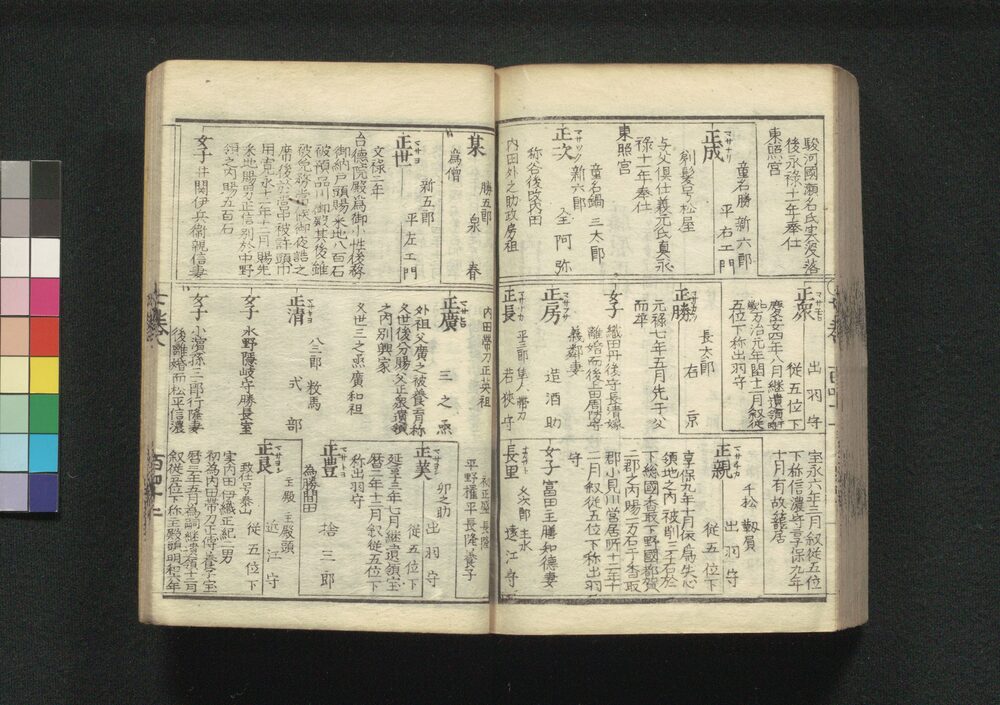 駿河國瀬名氏実没落
後永禄十一年奉仕
東照宮
正成
マサナリ
童名勝 新六郎
平右エ門
剃髪号松屋
与父倶仕義元氏真永
禄十一年奉仕
東照宮
正次
マサツグ
童名鍋 三太郎
新六郎 全阿弥
称谷後改内田
内田外之助政房祖
正衆
出羽守
従五位下
慶安四年八月継遺領
万治元年閏十二月叙従
五位下称出羽守
正勝
マサカツ
長太郎
右京
元禄七年五月先于父
而卒
女子
織田丹後守長清嫁
離婚而後上田周防守
義鄰妻
正房
マサフサ
造酒助
正長
平三郎 隼人 帯刀
若狭守
宝永六年三月叙従五位
下称信濃守享保九年
十月有故蟄居
正親
マサチカ
千松 靱屓
出羽守
従五位下
享保九年十月依為失心
領地之内被削三千石於
下総國香取下野國都賀
二郡之内賜一万石于香取
郡小見川當居所十二年十
二月叙従五位下称出羽
守
女子 富田主膳知徳妻
長里
又次郎 主水
遠江守
某
勝五郎
泉春
為僧
正世
マサヨ
新五郎
平左エ門
文禄二年
台徳院殿為御小性後務
御納戸頭賜采地八百石
被預品川御殿其後雖
被免務
席後於営中被許頭巾
用寛永十一年十二月賜先
采地賜男正信別於中野
領之内賜五百石
女子 井関伊兵衛親信妻
内田帯刀正英祖
正廣
三之丞
外祖父廣之被養育称
父世後分賜父正衆廣領
之内別興家
父世三之丞廣和祖
正清
マサキヨ
八三郎 数馬
式部
女子 水野隠岐守勝長室
女子 小濱孫三郎行隆妻
後離婚而松平信濃
平野権平長隆養子
正美
卯之助
出羽守
従五位下
延享三年七月継遺領宝
暦三年十二月叙従五位下
称出羽守
正豊
マサトヨ
捨三郎
為勝間田
正良
マサヨシ
主殿 主殿頭
近江守
従五位下
致仕号泰山
実内田伊織正紀二男
初為内田帯刀正傳養子宝
暦三年五月為嗣継遺領十二月
叙従五位下称主殿頭明和六年